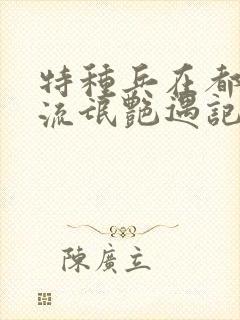 特種兵在都
流氓艷遇記
陳廣立